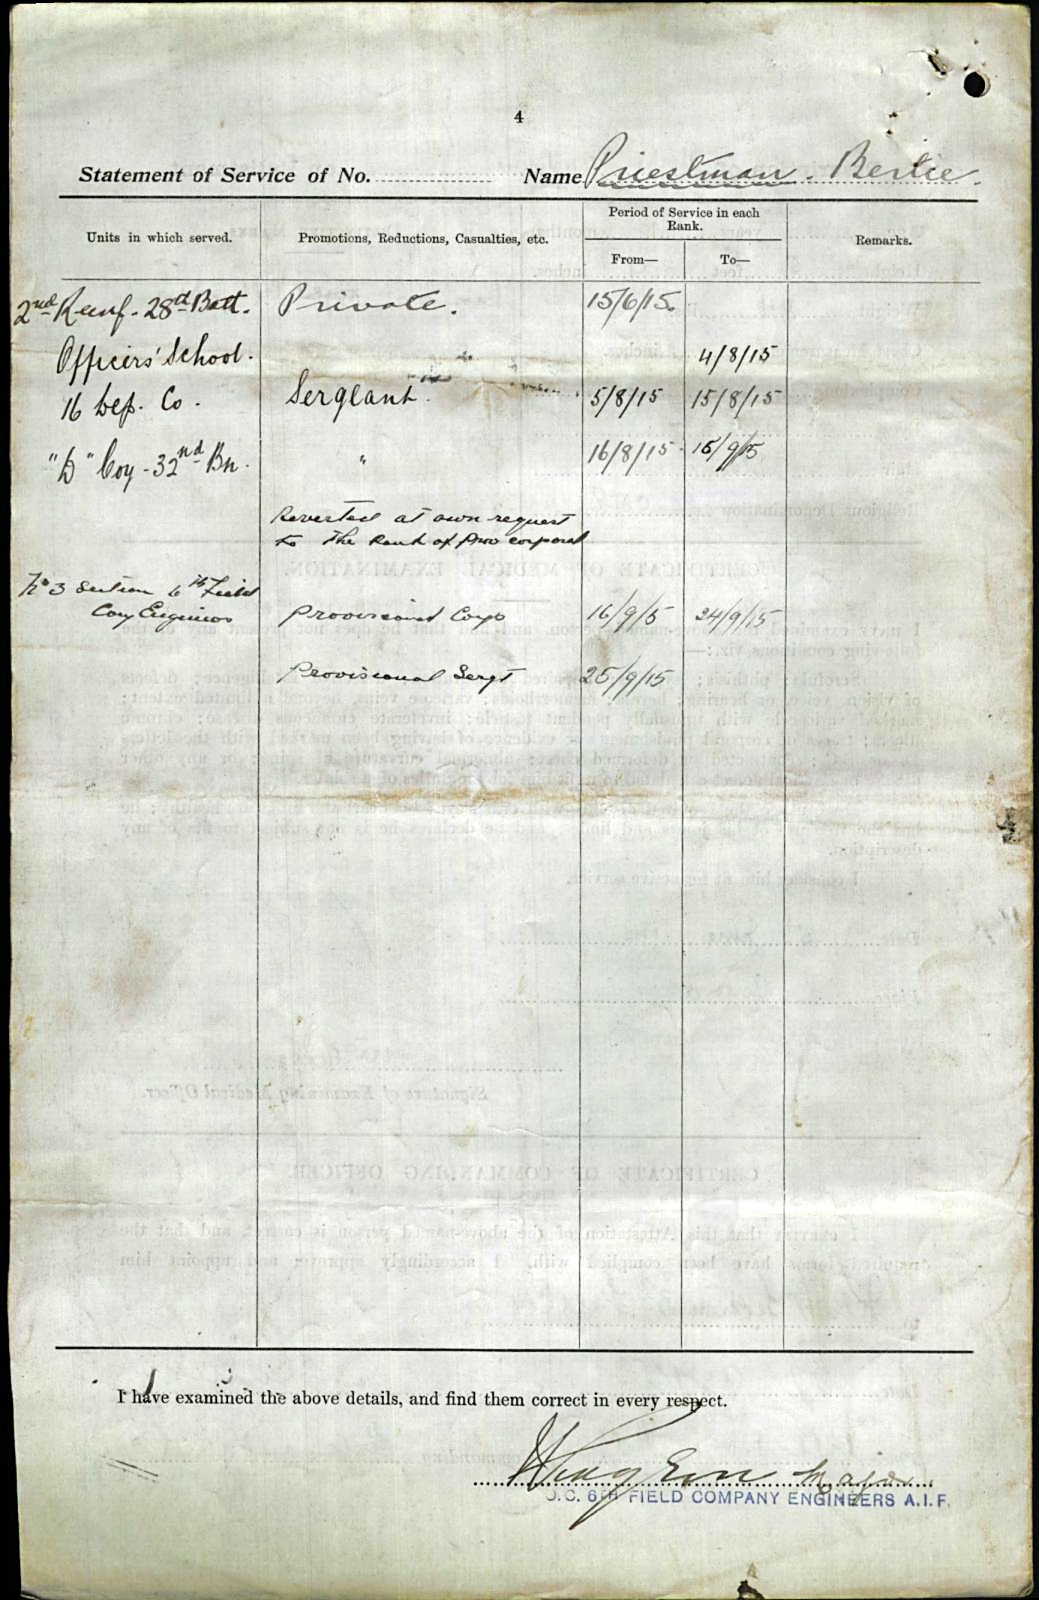 4
Statement of Service of No. Name Priestman. Bertie.
Units in which served. Promotions, Reductions, Casualties, etc. Period of Service in each Rank. From— To— Remarks.
2nd Reinf. 28th Batt. Private. 15/6/15.
Officers' School. 4/8/15
16 Dep. Co. Sergeant. 5/8/15 15/8/15
"D" Coy - 32nd Bn. " 16/8/15. 15/9/15
Reverted at own request
to the Rank of Prov corporal
No 3 Section 6th Field
Coy Engineers Provisional Corp 16/9/15 24/9/15
Provisional Sergt 25/9/15
I have examined the above details, and find them correct in every respect.
Major
O.C. 6TH FIELD COMPANY ENGINEERS A.I.F.